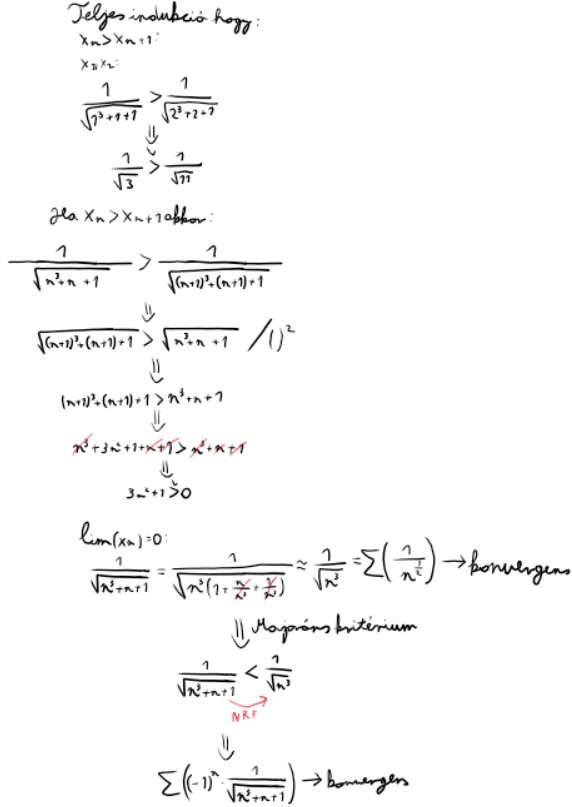 Teljes indukció hogy:
xₙ > xₙ₊₁:
x₁, x₂:
1/√(1³+1+1) > 1/√(2³+2+1)
⇓
1/√3 > 1/√11
Ha xₙ > xₙ₊₁ akkor:
1/√(n³+n+1) > 1/√((n+1)³+(n+1)+1)
⇓
√((n+1)³+(n+1)+1) > √(n³+n+1) /()²
⇓
(n+1)³+(n+1)+1 > n³+n+1
⇓
n³+3n²+1+n+1 > n³+n+1
⇓
3n²+1 > 0
lim(xₙ)=0:
1/√(n³+n+1) = 1/√(n³(1+n/n³+1/n³)) ≈ 1/√n³ = ∑(1/n^(3/2)) → konvergens
⇓ Majoráns kritérium
1/√(n³+n+1) < 1/√n³
NRF
⇓
∑((-1)ⁿ · 1/√(n³+n+1)) → konvergens